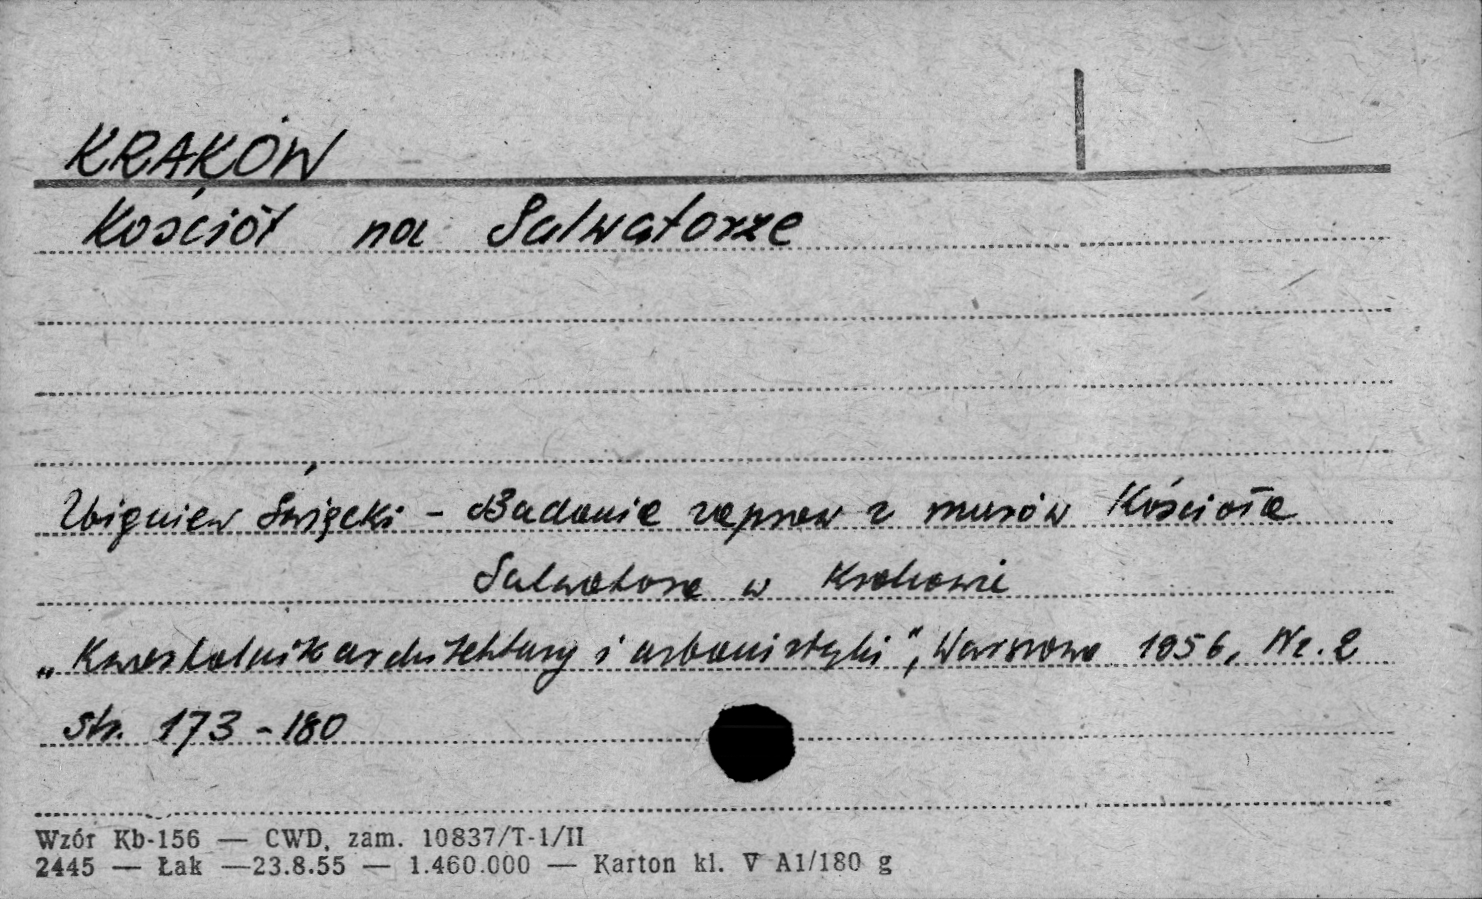 KRAKÓW
Kościół na Salwatorze
Zbigniew Święcki - Badanie zapraw z murów Kościoła
Salwatora w Krakowie
„Kwartalnik architektury i urbanistyki", Warszawa 1956, Nr. 2
str. 173-180
Wzór Kb-156 — CWD, zam. 10837/T-1/II
2445 — Łak —23.8.55 — 1.460.000 — Karton kl. V A1/180 g